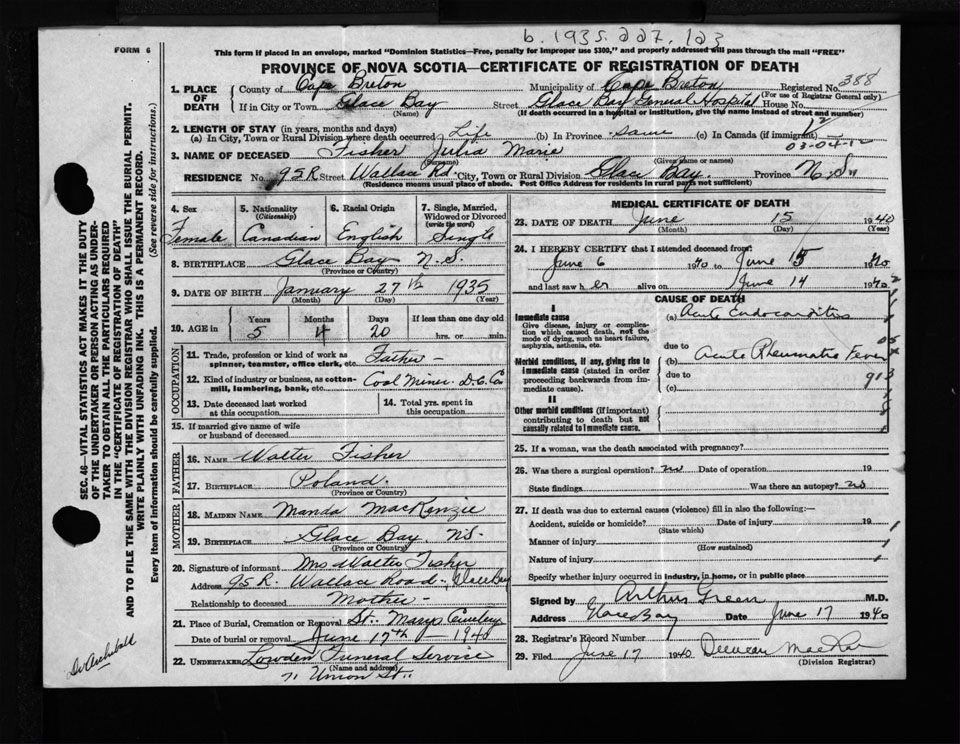 b. 1935. 227. 123
FORM 6
This form if placed in an envelope, marked "Dominion Statistics—Free, penalty for improper use $300," and properly addressed will pass through the mail "FREE"
PROVINCE OF NOVA SCOTIA—CERTIFICATE OF REGISTRATION OF DEATH
1. PLACE OF DEATH
County of Cape Breton Municipality of Cape Breton Registered No. 388
(For use of Registrar General only)
If in City or Town Glace Bay Street Glace Bay General Hospital House No.
(Name) (If death occurred in a hospital or institution, give the name instead of street and number)
2. LENGTH OF STAY (in years, months and days)
(a) In City, Town or Rural Division where death occurred Life (b) In Province same (c) In Canada (if immigrant)
12
03-04-12
3. NAME OF DECEASED Fisher Julia Marie
(Surname) (Given name or names)
RESIDENCE No. 95R Street Wallace Rd. City, Town or Rural Division Glace Bay Province N.S.
(Residence means usual place of abode. Post Office Address for residents in rural parts not sufficient)
4. Sex
Female
5. Nationality (Citizenship)
Canadian
6. Racial Origin
English
7. Single, Married, Widowed or Divorced (write the word)
Single
8. BIRTHPLACE Glace Bay N.S.
(Province or Country)
9. DATE OF BIRTH January 27 1935
(Month) (Day) (Year)
10. AGE in
Years Months Days If less than one day old
5 4 20 hrs. or min.
OCCUPATION
11. Trade, profession or kind of work as spinner, teamster, office clerk, etc. Father -
12. Kind of industry or business, as cotton-mill, lumbering, bank, etc. Coal Miner. D.C.Co
13. Date deceased last worked at this occupation
14. Total yrs. spent in this occupation
15. If married give name of wife or husband of deceased
FATHER
16. NAME Walter Fisher
17. BIRTHPLACE Poland.
(Province or Country)
MOTHER
18. MAIDEN NAME Manda MacKenzie
19. BIRTHPLACE Glace Bay N.S.
(Province or Country)
20. Signature of informant Mrs Walter Fisher
Address 95 R. Wallace Road, Glace Bay
Relationship to deceased Mother -
21. Place of Burial, Cremation or Removal St. Marys Cemetery
Date of burial or removal June 17th - 1940
22. UNDERTAKER Lowden Funeral Service
(Name and address)
71 Union St.
MEDICAL CERTIFICATE OF DEATH
23. DATE OF DEATH June 15 1940
(Month) (Day) (Year)
24. I HEREBY CERTIFY that I attended deceased from:
June 6 1940 to June 15 1940
and last saw her alive on June 14 1940
CAUSE OF DEATH
I
Immediate cause
Give disease, injury or complication which caused death, not the mode of dying, such as heart failure, asphyxia, asthenia, etc.
(a) Acute Endocarditis
due to
Morbid conditions, if any, giving rise to immediate cause (stated in order proceeding backwards from immediate cause).
(b) Acute Rheumatic Fever
due to
(c)
II
Other morbid conditions (if important) contributing to death but not causally related to immediate cause.
25. If a woman, was the death associated with pregnancy?
26. Was there a surgical operation? no Date of operation 19
State findings Was there an autopsy? no
27. If death was due to external causes (violence) fill in also the following:—
Accident, suicide or homicide? Date of injury 19
(State which)
Manner of injury
(How sustained)
Nature of injury
Specify whether injury occurred in industry, in home, or in public place
Signed by Arthur Green M.D.
Address Glace Bay Date June 17 1940
28. Registrar's Record Number
29. Filed June 17 1940 Duncan
(Division Registrar)
SEC. 46—VITAL STATISTICS ACT MAKES IT THE DUTY
OF THE UNDERTAKER OR PERSON ACTING AS UNDER-
TAKER TO OBTAIN ALL THE PARTICULARS REQUIRED
IN THE "CERTIFICATE OF REGISTRATION OF DEATH"
AND TO FILE THE SAME WITH THE DIVISION REGISTRAR WHO SHALL ISSUE THE BURIAL PERMIT.
WRITE PLAINLY WITH UNFADING INK. THIS IS A PERMANENT RECORD.
Every item of information should be carefully supplied. (See reverse side for instructions.)
Dr Archibald